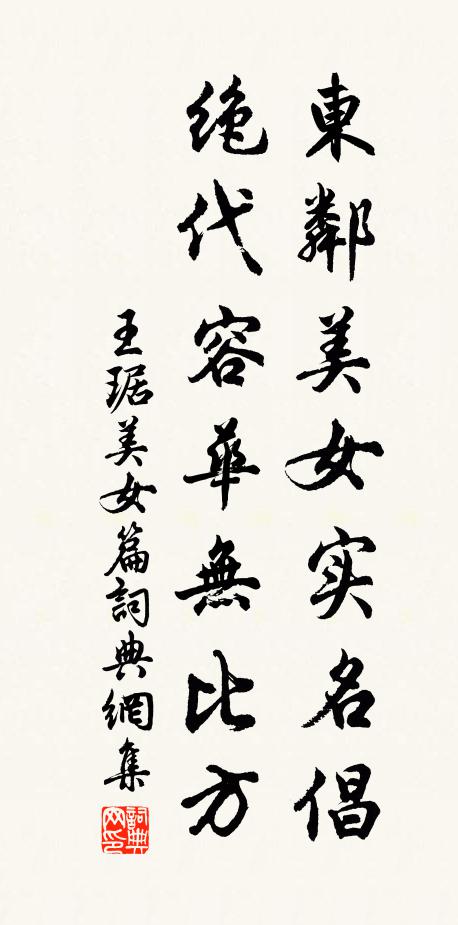 東鄰美女实名倡
绝代容華無比方
王琚美女篇詞典網集
詞典網印